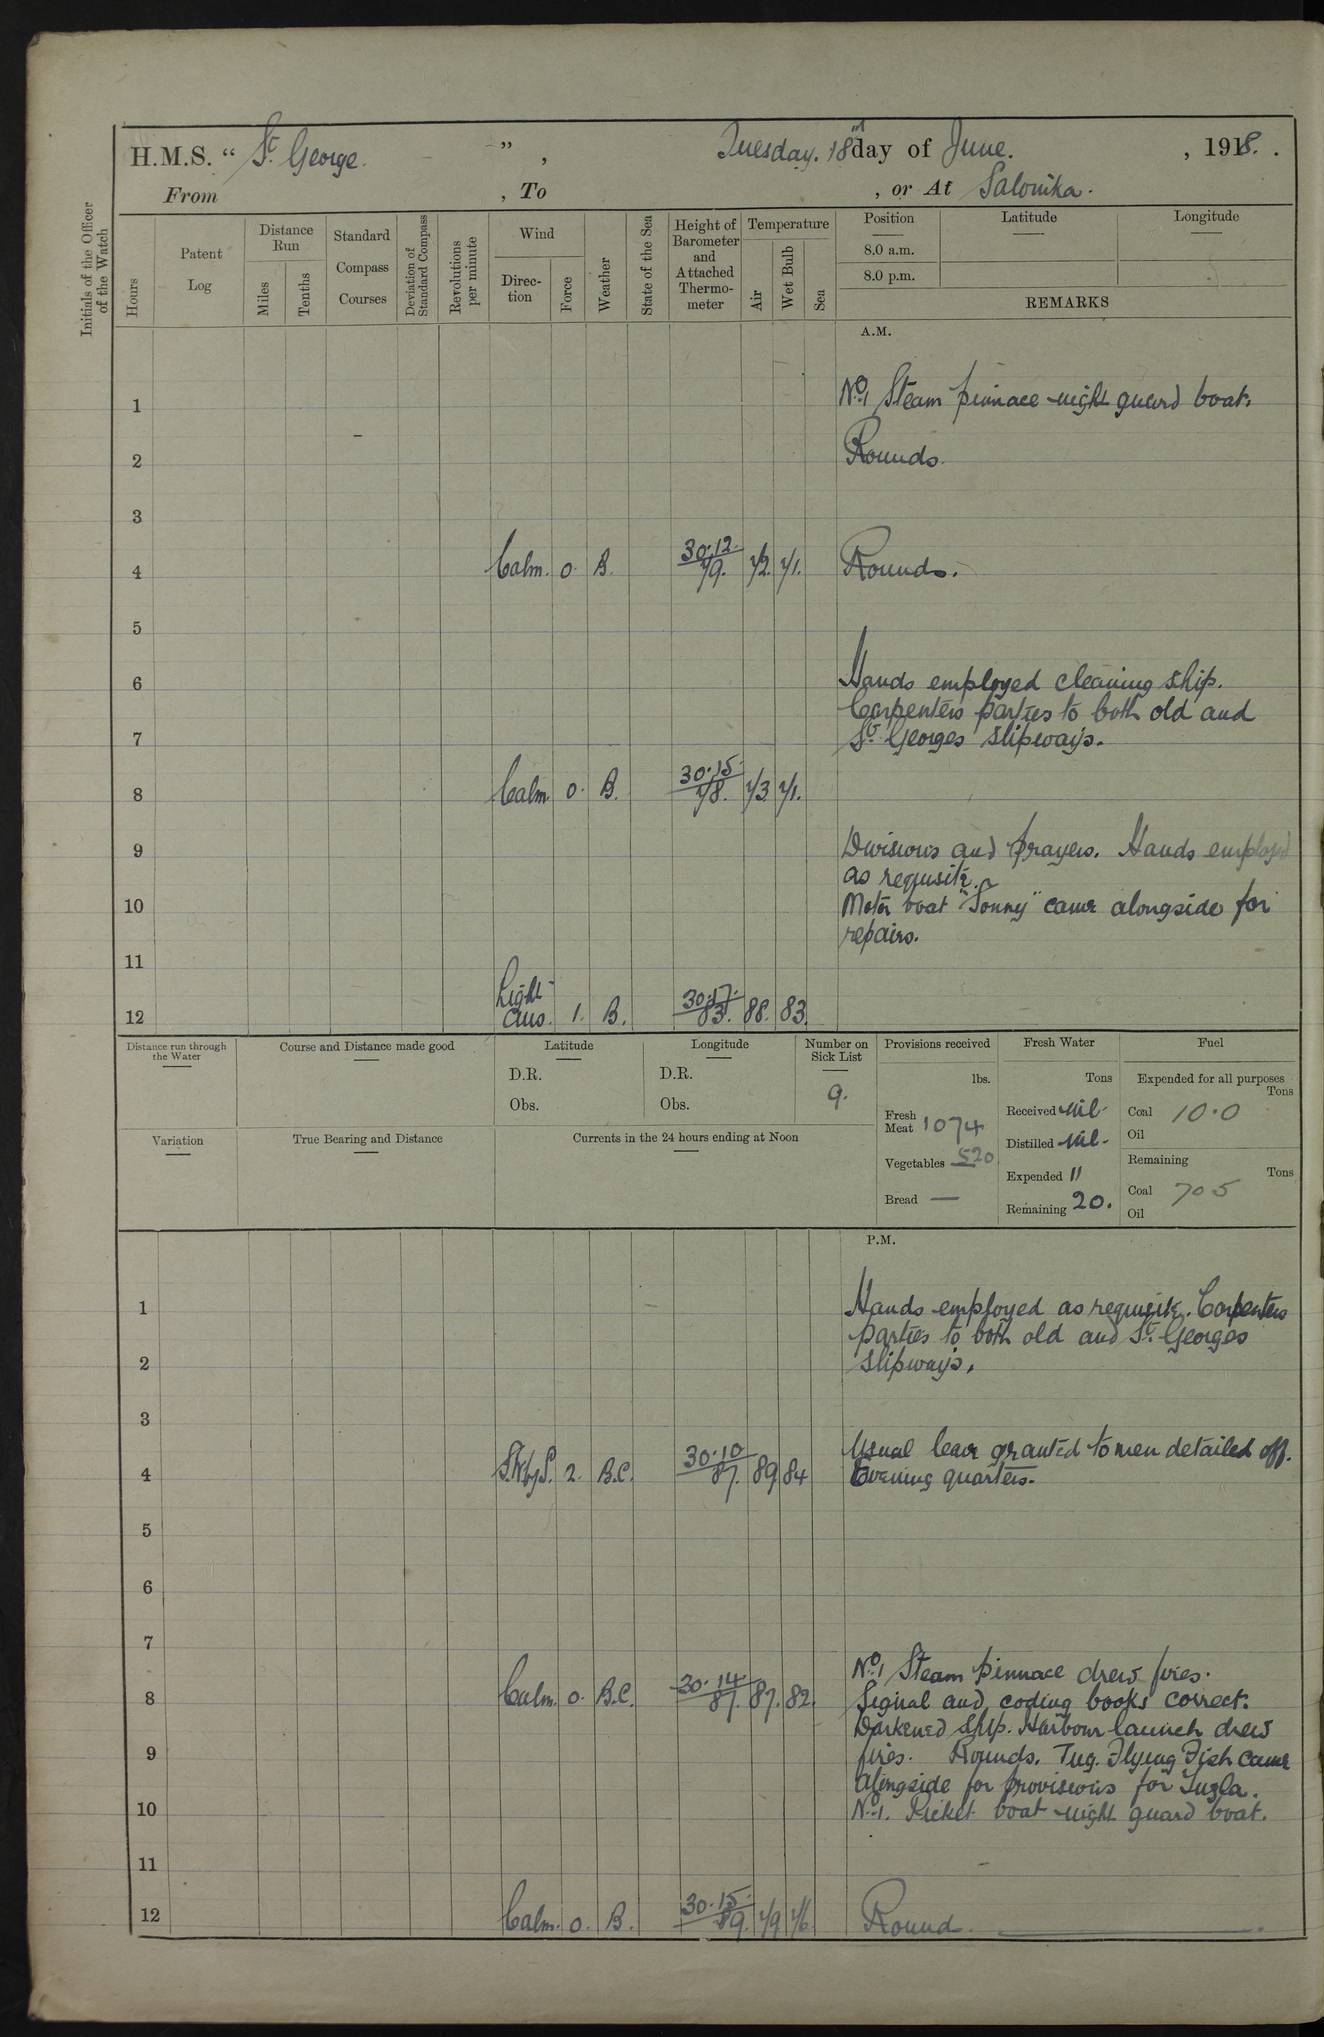 H.M.S. “ St. George. ” , Tuesday. 18th day of June. , 1918. .
From , To , or At Salonika.
Initials of the Officer of the Watch
Hours
Patent Log
Distance Run
Miles
Tenths
Standard Compass Courses
Deviation of Standard Compass
Revolutions per minute
Wind
Direction
Force
Weather
State of the Sea
Height of Barometer and Attached Thermometer
Temperature
Air
Wet Bulb
Sea
Position Latitude Longitude
8.0 a.m.
8.0 p.m.
REMARKS
A.M.
1 No. 1 Steam pinnace night guard boat.
2 Rounds.
3
4 Calm. 0. B. 30.12. 79. 72. 71. Rounds.
5
6 Hands employed cleaning ship.
Carpenters parties to both old and
7 St. Georges slipways.
8 Calm. 0. B. 30.15. 78. 73. 71.
9 Divisions and prayers. Hands employed
as requisite.
10 Motor boat "Sonny" came alongside for
repairs.
11
12 Light airs. 1. B. 30.17. 83. 88. 83.
Distance run through the Water
Course and Distance made good
Latitude
D.R.
Obs.
Longitude
D.R.
Obs.
Number on Sick List
9.
Provisions received
lbs.
Fresh Meat 1074
Vegetables 520
Bread —
Fresh Water
Tons
Received Nil.
Distilled Nil.
Expended 11
Remaining 20.
Fuel
Expended for all purposes
Tons
Coal 10.0
Oil
Remaining
Tons
Coal 705
Oil
Variation
True Bearing and Distance
Currents in the 24 hours ending at Noon
P.M.
1 Hands employed as requisite. Carpenters
parties to both old and St. Georges
2 slipways.
3
Usual leave granted to men detailed off.
4 S.W by S. 2. B.C. 30.10 87. 89. 84 Evening quarters.
5
6
7
No. 1 Steam pinnace drew fires.
8 Calm. 0. B.C. 30.14 87. 87. 82. Signal and coding books correct.
Darkened ship. Harbour launch drew
9 fires. Rounds. Tug. Flying Fish came
alongside for provisions for Tuzla.
10 No. 1. Picket boat night guard boat.
11
12 Calm. 0. B. 30.15. 89. 79. 76. Round.